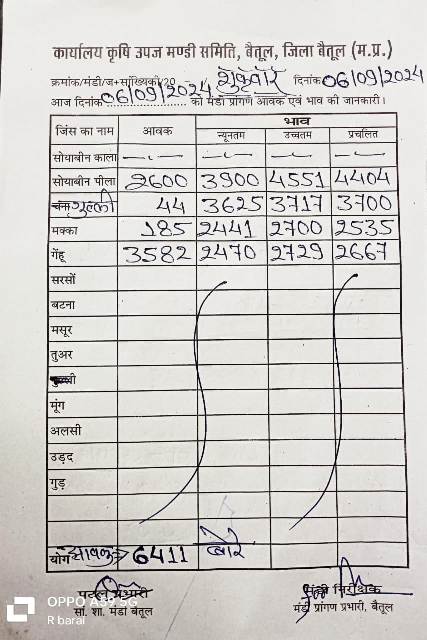 कार्यालय कृषि उपज मण्डी समिति, बैतूल, जिला बैतूल (म.प्र.)
क्रमांक/मंडी/ज+सांख्यिकी/20 - शुक्रवार दिनांक 06/09/2024
आज दिनांक 06/09/2024 को मंडी प्रांगण आवक एवं भाव की जानकारी।
जिंस का नाम आवक भाव
न्यूनतम उच्चतम प्रचलित
सोयाबीन काला
सोयाबीन पीला 2600 3900 4551 4404
गुल्ली 44 3625 3717 3700
मक्का 185 2441 2700 2535
गेंहू 3582 2470 2729 2667
सरसों
बटना
मसूर
तुअर
मूंग
अलसी
उड़द
गुड़
योग आवक 6411 बोरे
प्रभारी मंडी निरीक्षक
सां. शा. मंडी बैतूल मंडी प्रांगण प्रभारी, बैतूल
OPPO A59 5G
R barai